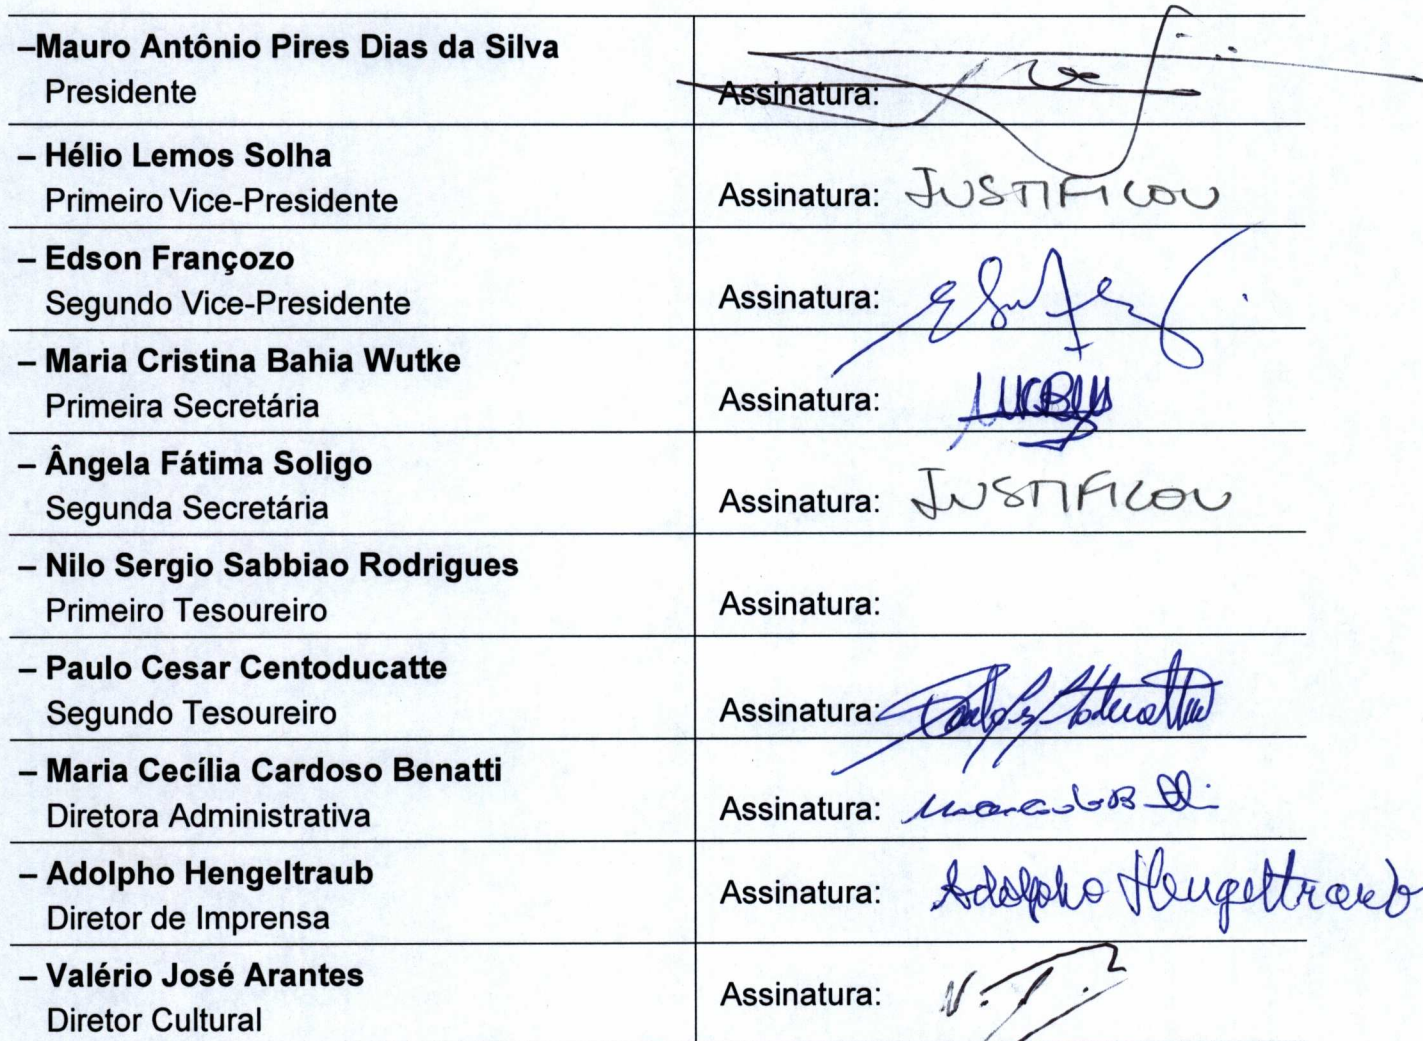 –Mauro Antônio Pires Dias da Silva
Presidente
Assinatura:
– Hélio Lemos Solha
Primeiro Vice-Presidente
Assinatura: JUSTIFICOU
– Edson Françozo
Segundo Vice-Presidente
Assinatura:
– Maria Cristina Bahia Wutke
Primeira Secretária
Assinatura:
– Ângela Fátima Soligo
Segunda Secretária
Assinatura: JUSTIFICOU
– Nilo Sergio Sabbiao Rodrigues
Primeiro Tesoureiro
Assinatura:
– Paulo Cesar Centoducatte
Segundo Tesoureiro
Assinatura:
– Maria Cecília Cardoso Benatti
Diretora Administrativa
Assinatura:
– Adolpho Hengeltraub
Diretor de Imprensa
Assinatura: Adolpho Hengeltraub
– Valério José Arantes
Diretor Cultural
Assinatura: